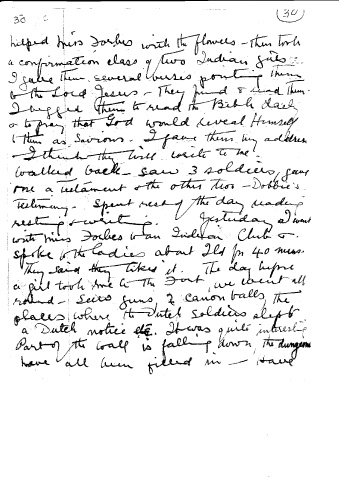 30 30
helped Miss Forbes with the flowers - then took
a confirmation class of two Indian girls.
I gave them several verses pointing them
to the Lord Jesus - They find & read them.
I begged them to read the Bible daily
& to pray that God would reveal Himself
to them as Saviour. I gave them my address
- I think they will write to me.
Walked back - saw 3 soldiers, gave
one a testament & the other two - Dobbie's
testimony. Spent rest of the day reading
resting & writing. Yesterday I went
with Miss Forbes to an Indian Club &
spoke to the ladies about for 40 mins.
They said they liked it. The day before
a girl took me to the Fort, we went all
round - Seeing guns, & canon balls, the
places where the Dutch Soldiers slept &
a Dutch notice etc. It was quite interesting
Part of the wall is falling down, the dungeons
have all been filled in - Have